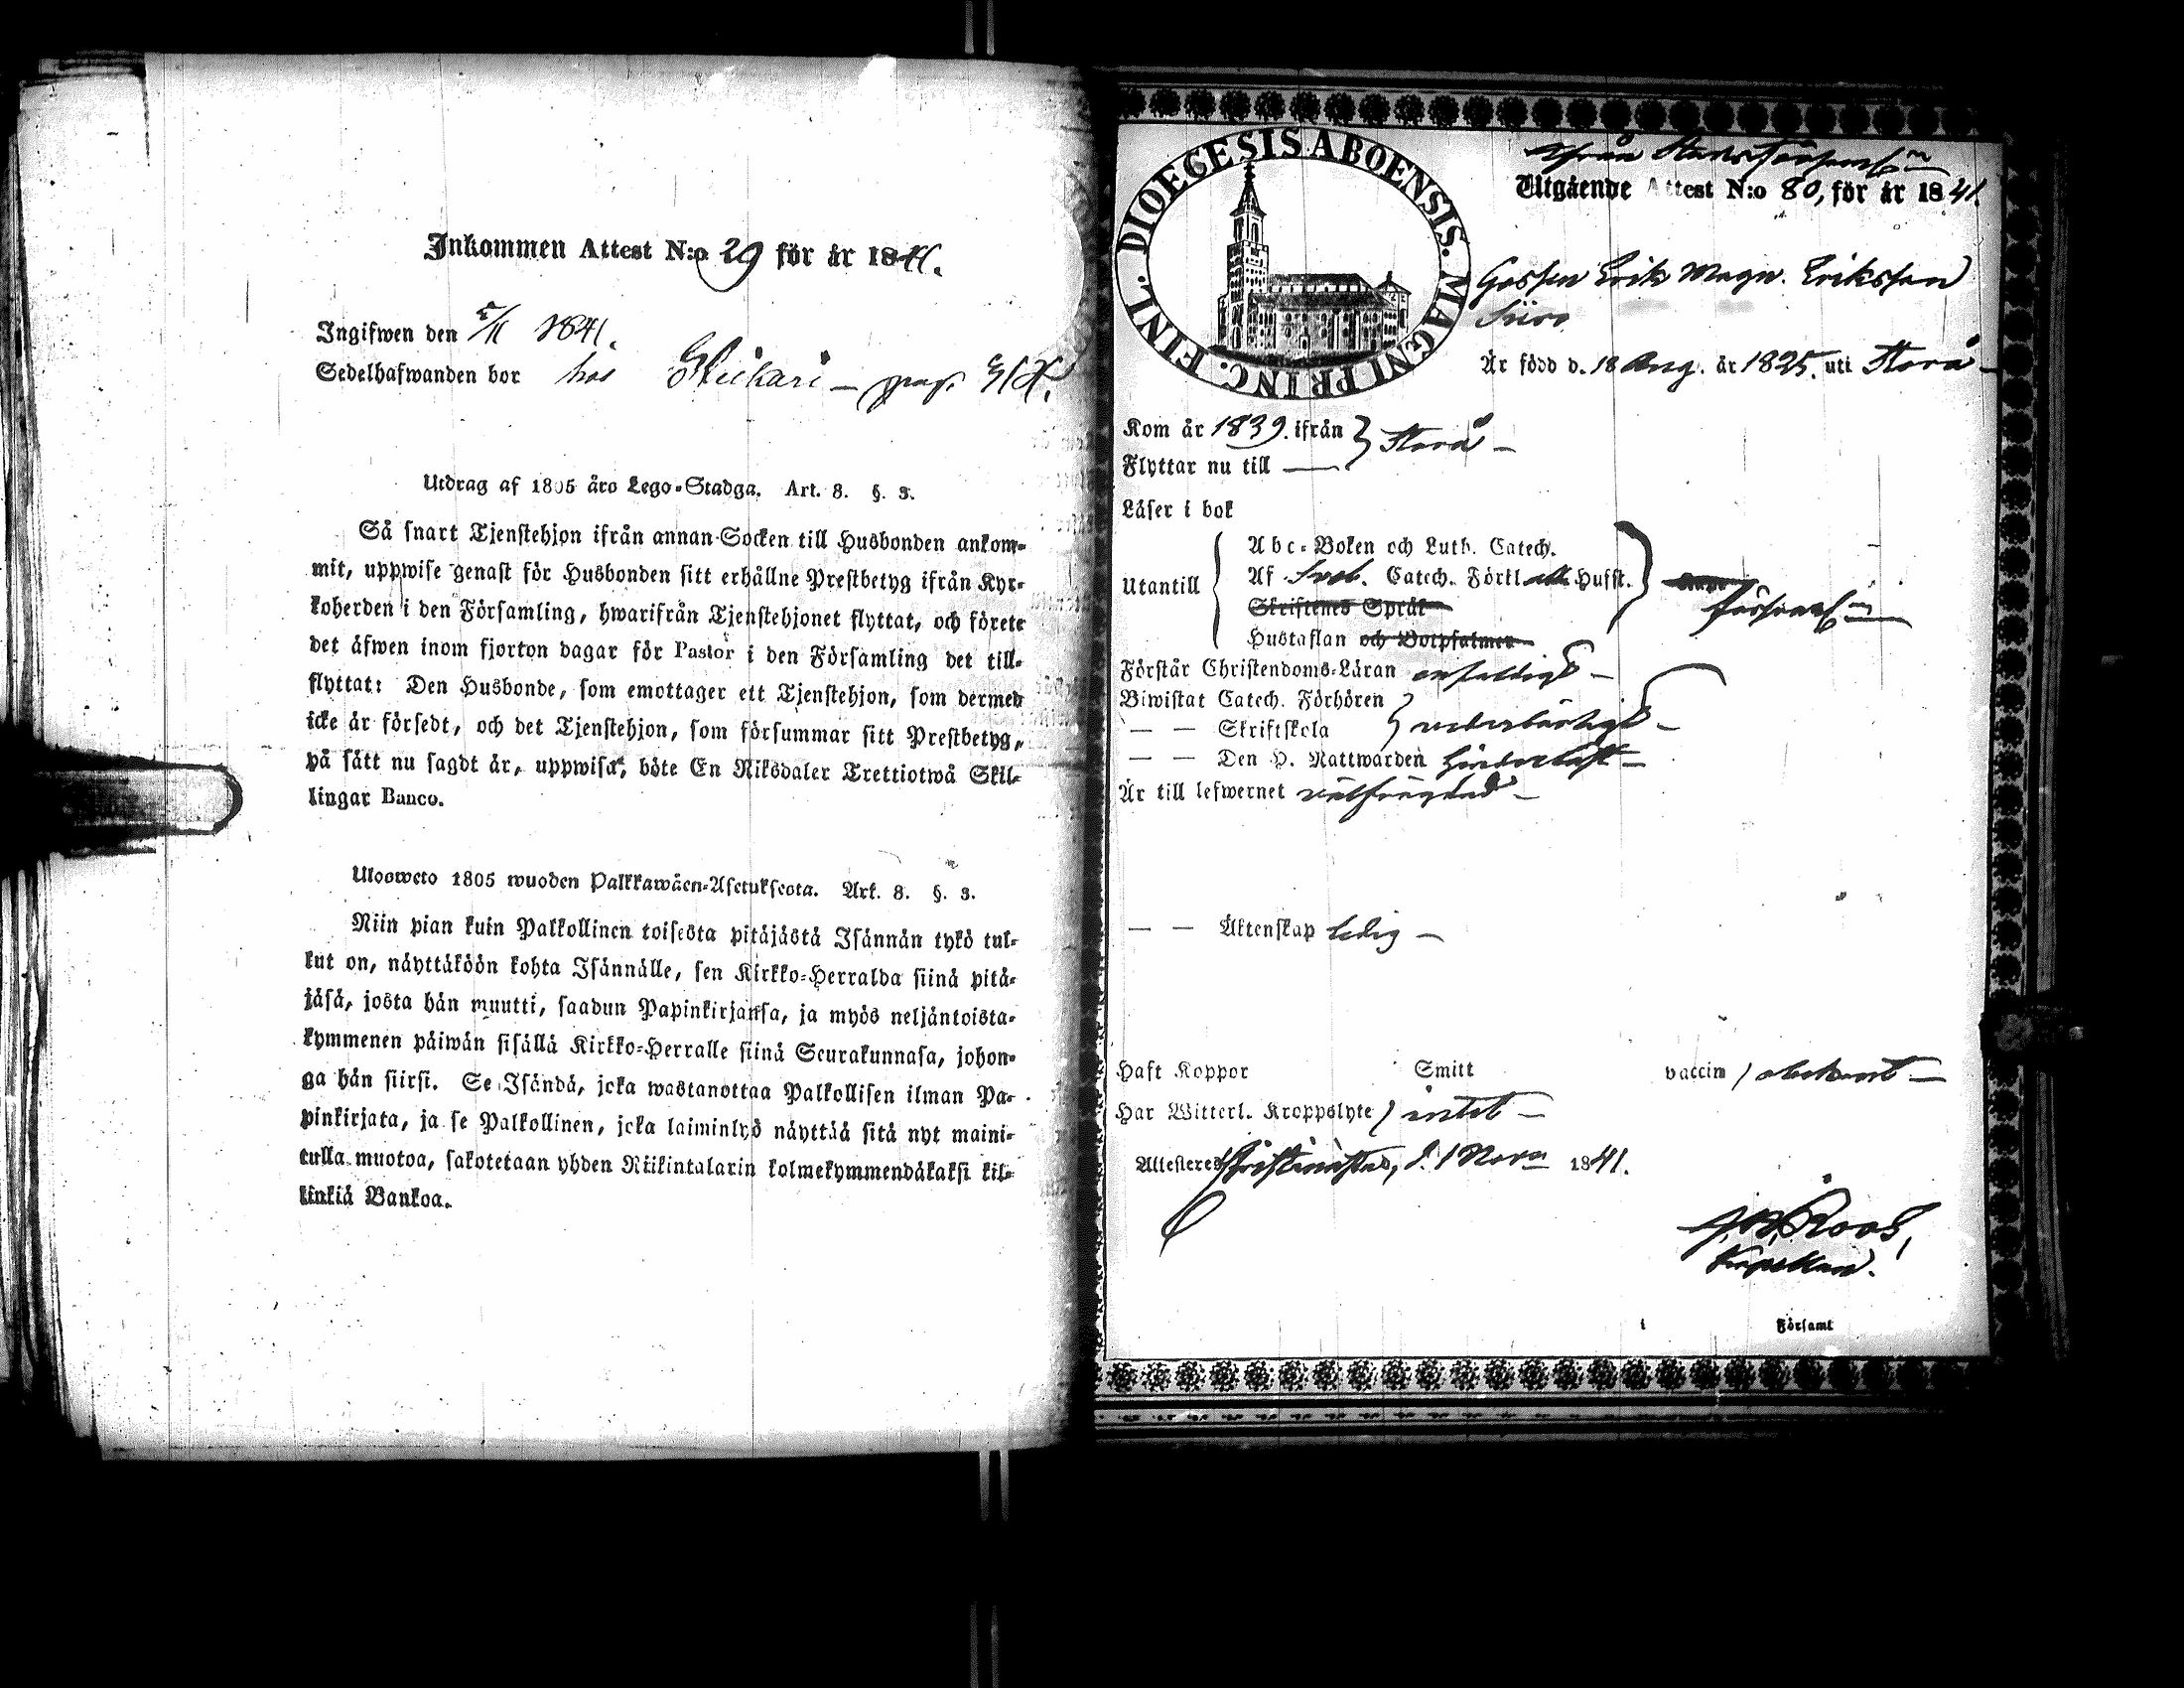 Inkommen Attest N:o 29 för år 1841.
Ingifwen den 5/11 1841.
Sedelhafwanden bor hos pag.
Utdrag af 1805 års Lego-Stadga. Art. 8. §. 3.
Så snart Tjenstehjon ifrån annan Socken till Husbonden ankom-
mit, uppwise genast för Husbonden sitt erhållne Prestbetyg ifrån Kyr-
koherden i den Församling, hwarifrån Tjenstehjonet flyttat, och förete
det äfwen inom fjorton dagar för Pastor i den Församling det till-
flyttat: Den Husbonde, som emottager ett Tjenstehjon, som dermed
icke är försedt, och det Tjenstehjon, som försummar sitt Prestbetyg,
på sätt nu sagdt är, uppwisa, böte En Riksdaler Trettiotwå Skil-
lingar Banco.
Ulosweto 1805 wuoden Palkkawäen-Asetuksesta. Art. 8. §. 3.
Niin pian kuin Palkollinen toisesta pitäjästä Isännän tykö tul-
kut on, näyttäköön kohta Isännälle, sen Kirkko-Herralda siinä pitä-
jäsä, josta hän muutti, saadun Papinkirjansa, ja myös neljäntoista-
kymmenen päiwän sisällä Kirkko-Herralle siinä Seurakunnasa, johon-
ga hän siirsi. Se Isändä, joka wastanottaa Palkollisen ilman Pa-
pinkirjata, ja se Palkollinen, joka laiminlyö näyttää sitä nyt maini-
tulla muotoa, sakotetaan yhden Riikintalarin kolmekymmendäkaksi kil-
linkiä Bankoa.
DIOECESIS ABOENSIS. MAGNI PRINC. FINL.
Ifrån Stadsförsaml:n
Utgående Attest N:o 80, för år 1841.
Gossen Erik Magn. Eriksson
Är född d. 18 Aug. år 1825. uti Storå
Kom år 1839. ifrån } Storå
Flyttar nu till
Läser i bok
Utantill
Abc-Boken och Luth. Catech.
Af Sveb. Catech. Förkl. alla Hufst.
Skriftenes Språk
Hustaflan och Botpsalmer
försvarl:n
Förstår Christendoms-Läran enfaldigt
Biwistat Catech. Förhören
— — Skriftskola } vederbörligt
— — Den H. Nattwarden
Är till lefwernet välfrägdad
— — Äktenskap ledig
Haft Koppor Smitt vaccin / obekant
Har Witterl. Kroppslyte / intet
Attesteres Christinestad, d. 1 Nov. 1841.
Roos,
Kapellan.
i Församl